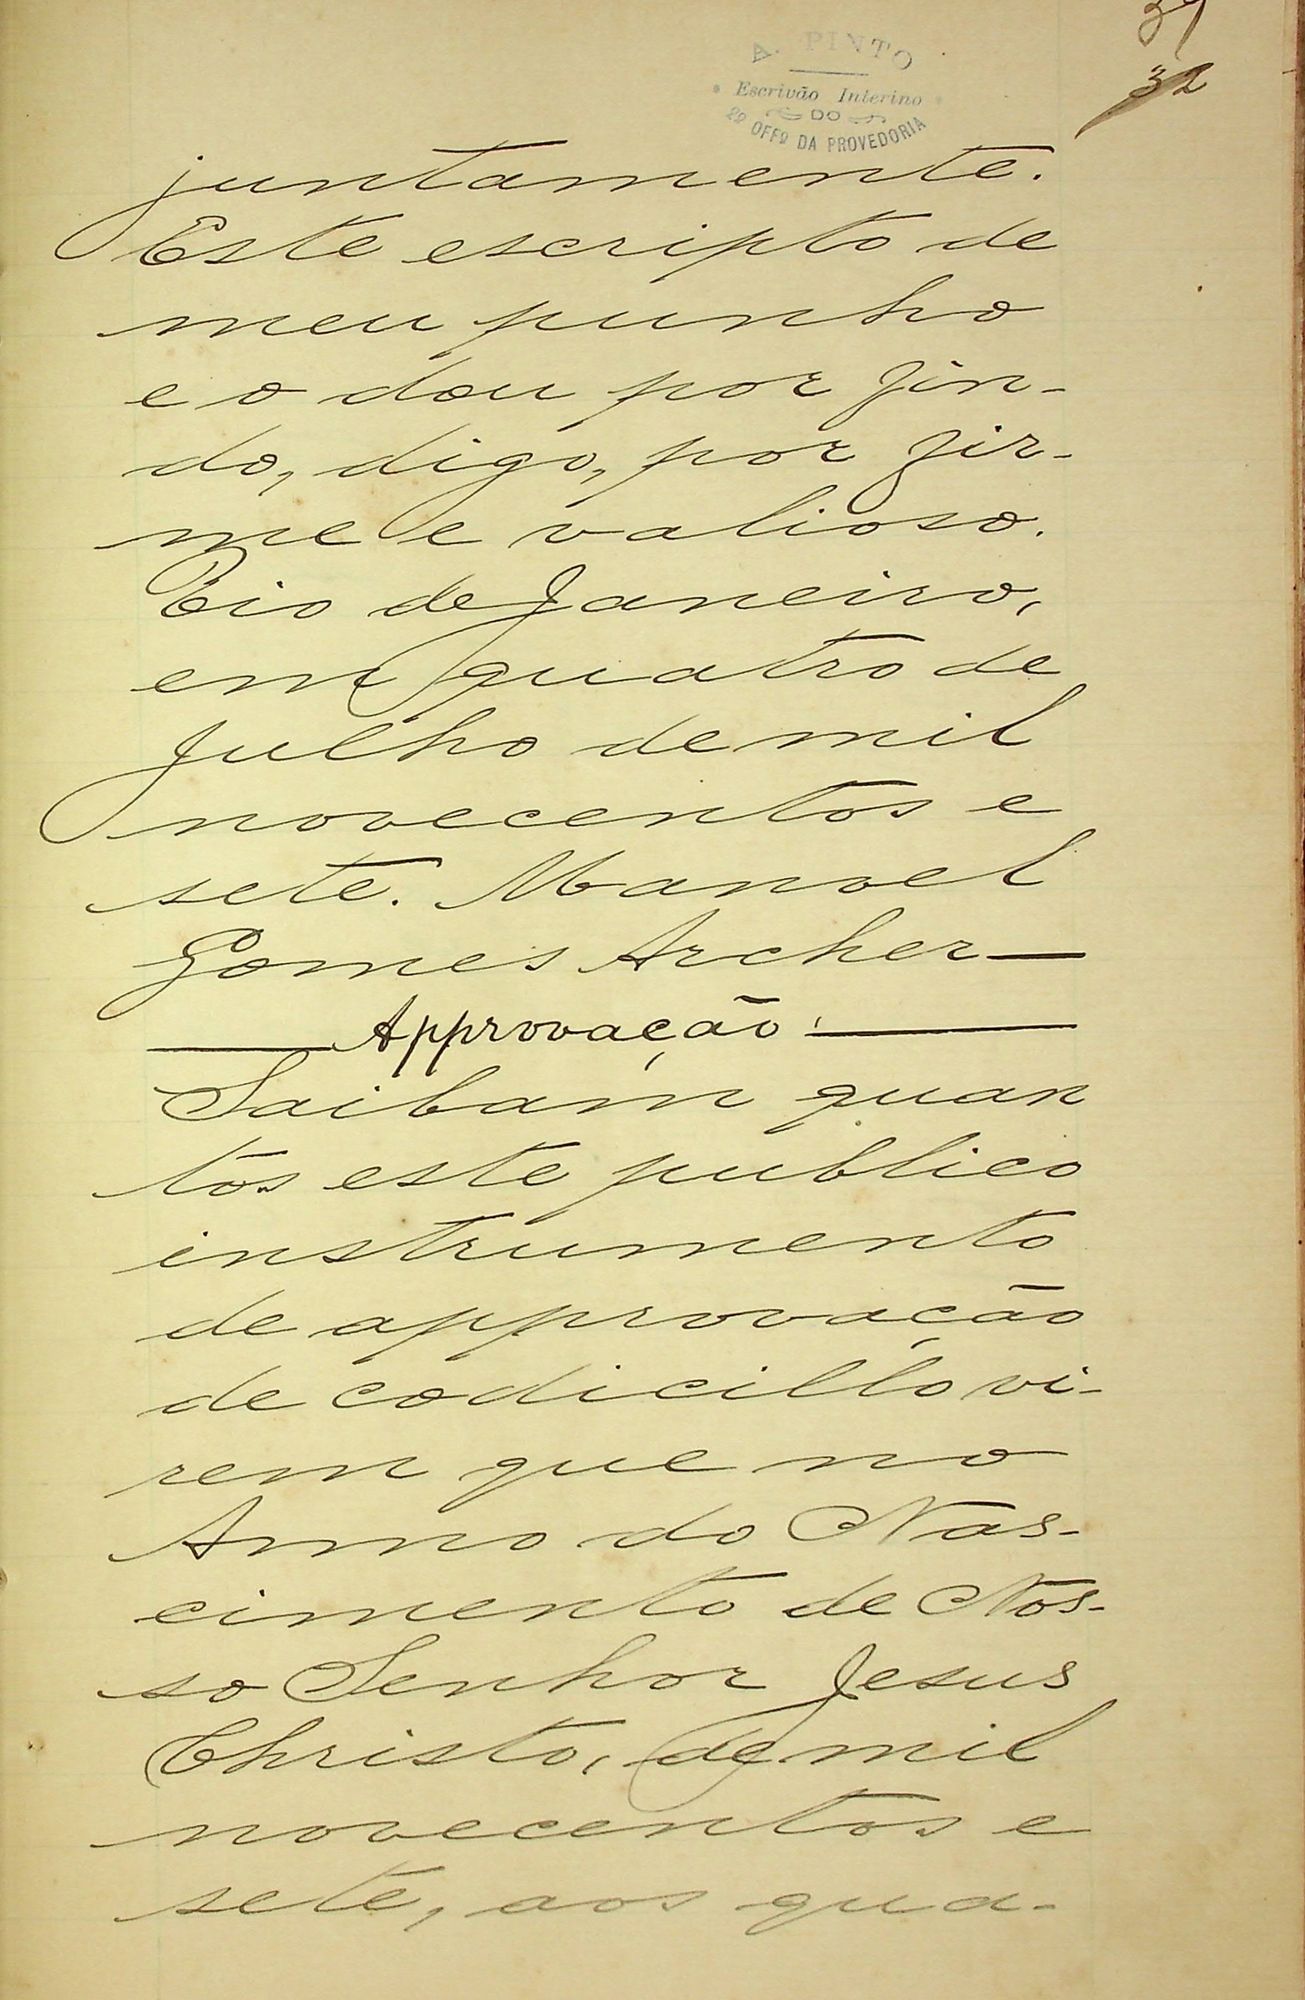 32
A. PINTO
Escrivão Interino
DO
2º OFFº DA PROVEDORIA
juntamente.
Este escripto de
meu punho
e o dou por fin-
do, digo, por fir-
me e valioso.
Rio de Janeiro,
em quatro de
Julho de mil
novecentos e
sete. Manoel
Gomes Archer —
— Approvação. —
Saibam quan
tos este publico
instrumento
de approvação
de codicillo vi-
rem que no
Anno do Nas-
cimento de Nos-
so Senhor Jesus
Christo, de mil
novecentos e
sete, aos qua-